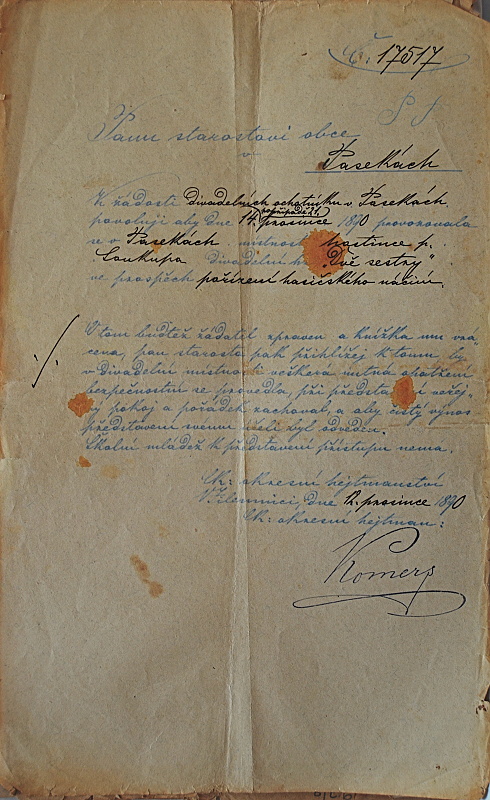 Č: 17517
Panu starostovi obce
v
Pasekách
K žádosti divadelních ochotníků v Pasekách
povoluji aby dne 14. prosince 1890 provozovala
se v Pasekách v místnosti hostince p.
Soukupa divadelní hra "Dvě sestry"
ve prospěch pořízení hasičského náčiní.
O tom budtež žadatel zpraven a knížka mu vrá-
cena, pan starosta pak přihlížej k tomu, by
v divadelní místnosti veškerá nutná opatření
bezpečnostní se provedla, při představení veřej-
ný pokoj a pořádek zachoval, a aby čistý výnos
představení svému účeli byl odveden.
Školní mládež k představení přístupu nemá.
Ck: okresní hejtmanství
V Jilemnici, dne 12. prosince 1890
Ck: okresní hejtman:
Komers